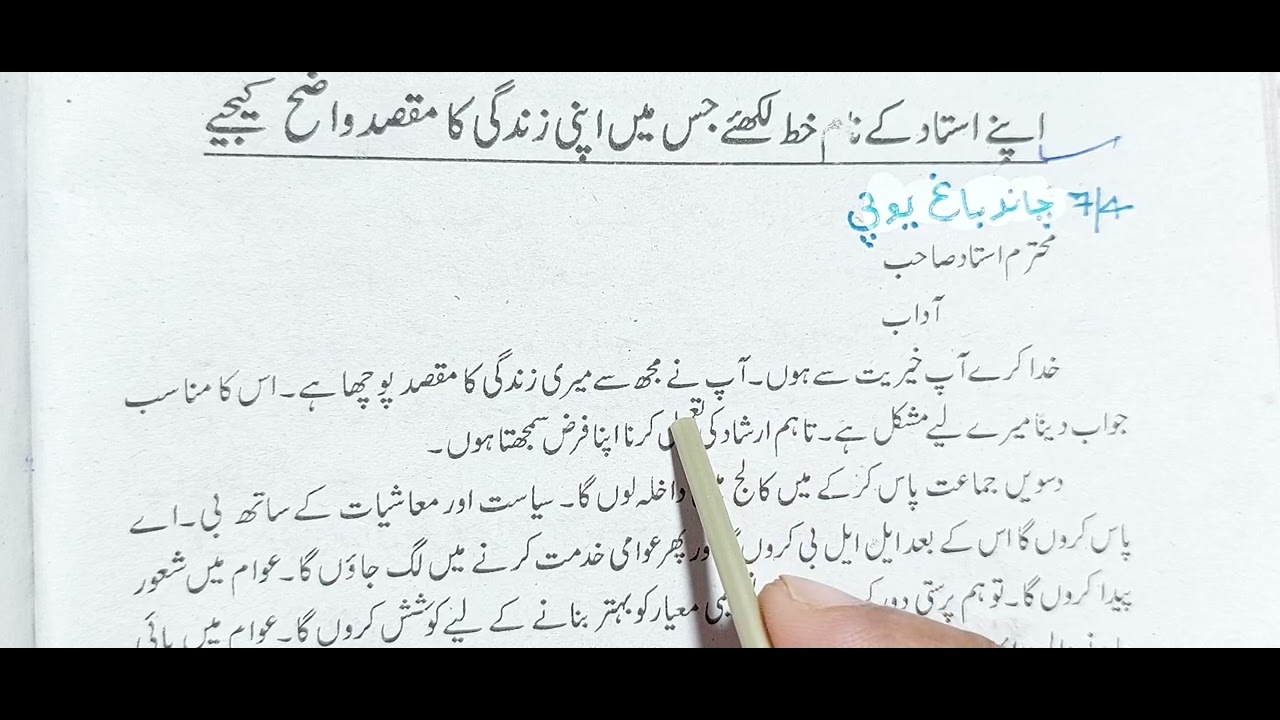 اپنے استاد کے نام خط لکھئے جس میں اپنی زندگی کا مقصد واضح کیجیے
7/4 چاند باغ یوپی
محترم استاد صاحب
آداب
خدا کرے آپ خیریت سے ہوں۔ آپ نے مجھ سے میری زندگی کا مقصد پوچھا ہے۔ اس کا مناسب
جواب دینا میرے لیے مشکل ہے۔ تاہم ارشاد کی کرنا اپنا فرض سمجھتا ہوں۔
دسویں جماعت پاس کرکے میں کالج داخلہ لوں گا۔ سیاست اور معاشیات کے ساتھ بی۔اے
پاس کروں گا اس کے بعد ایل ایل بی کروں پھر عوامی خدمت کرنے میں لگ جاؤں گا۔ عوام میں شعور
پیدا کروں گا۔ توہم پرستی دور معیار کو بہتر بنانے کے لیے کوشش کروں گا۔ عوام میں پائی